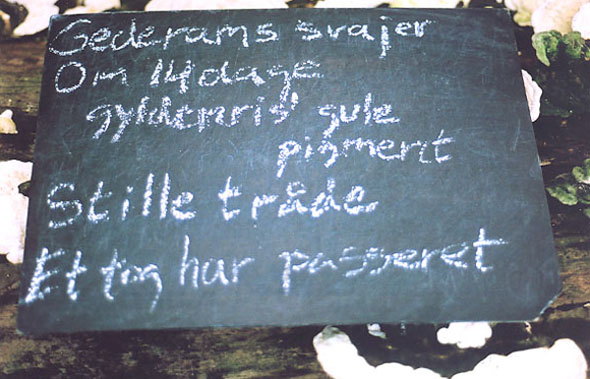 Gederams svajer
Om 14 dage
gyldenris' gule
pigment
Stille tråde
Et tog har passeret